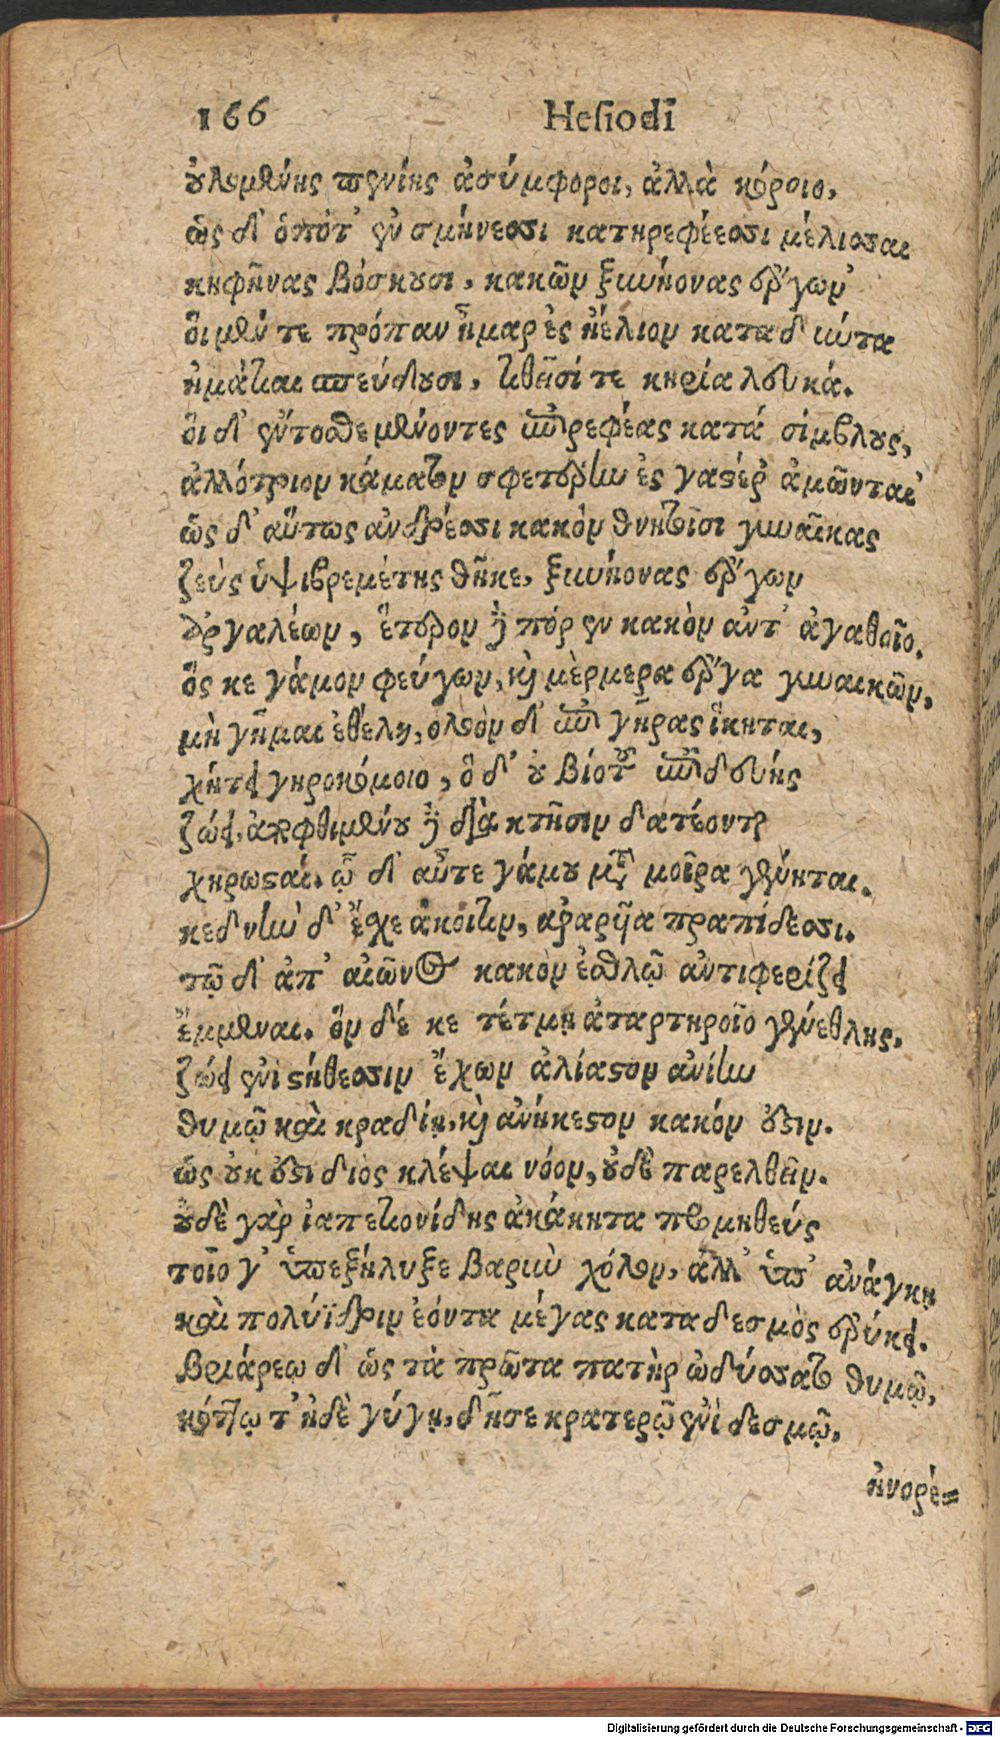 166 Hesiodi
οὐλομένης πενίης ἀσύμφοροι, ἀλλὰ κόροιο,
ὡς δ' ὁπότ' ἐν σμήνεσσι κατηρεφέεσσι μέλισσαι
κηφῆνας βόσκουσι, κακῶν ξυνήονας ἔργων
οἳ μέν τε πρόπαν ἦμαρ ἐς ἠέλιον καταδύντα
ἠμάτιαι σπεύδουσι, τιθεῖσί τε κηρία λευκά.
οἱ δ' ἔντοσθε μένοντες ἐπηρεφέας κατά σίμβλους,
ἀλλότριον κάματον σφετέρην ἐς γαστέρ' ἀμῶνται
ὣς δ' αὔτως ἄνδρεσσι κακὸν θνητοῖσι γυναῖκας
ζεὺς ὑψιβρεμέτης θῆκε, ξυνήονας ἔργων
ἀργαλέων, ἕτερον δὲ πόρεν κακὸν ἀντ' ἀγαθοῖο.
ὅς κε γάμον φεύγων, καὶ μέρμερα ἔργα γυναικῶν,
μὴ γῆμαι ἐθέλῃ, ὀλοὸν δ' ἐπὶ γῆρας ἵκηται,
χήτει γηροκόμοιο, ὁ δ' οὐ βιότου ἐπιδευής
ζώει, ἀποφθιμένου δὲ διὰ κτῆσιν δατέονται
χηρωσταί. ᾧ δ' αὖτε γάμου μετὰ μοῖρα γένηται.
κεδνὴν δ' ἔχε ἄκοιτιν, ἀραρῦῖα πραπίδεσσι.
τῷ δ' ἀπ' αἰῶνος κακὸν ἐσθλῷ ἀντιφερίζει
ἔμμεναι. ὃν δέ κε τέτμῃ ἀταρτηροῖο γενέθλης,
ζώει ἐνὶ στήθεσσιν ἔχων ἀλίαστον ἀνίην
θυμῷ καὶ κραδίῃ, καὶ ἀνήκεστον κακόν ἐστιν.
ὡς οὐκ ἔστι διὸς κλέψαι νόον, οὐδὲ παρελθεῖν.
οὐδὲ γὰρ ἰαπετιονίδης ἀκάκητα προμηθεύς
τοῖο γ' ὑπεξήλυξε βαρὺν χόλον, ἀλλ' ὑπ' ἀνάγκῃ
καὶ πολύϊδριν ἐόντα μέγας κατα δεσμὸς ἐρύκει.
βριάρεῳ δ' ὡς τὰ πρῶτα πατὴρ ὠδύσσατο θυμῷ,
κόττῳ τ' ἠδὲ γύγῃ, δῆσε κρατερῷ ἐνὶ δεσμῷ,
ἠνορέ=
Digitalisierung gefördert durch die Deutsche Forschungsgemeinschaft - DFG